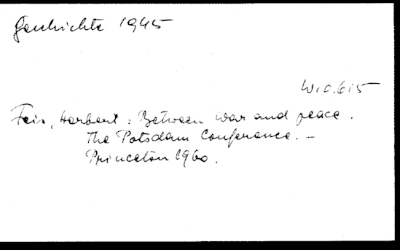 Geschichte 1945
W10.615
Feis, Herbert: Between war and peace.
The Potsdam Conference. –
Princeton 1960.